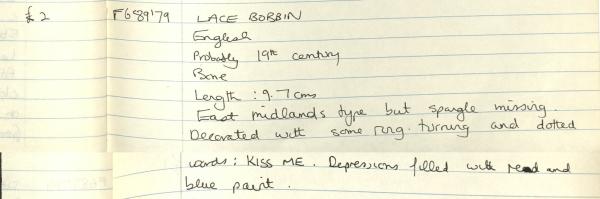 £2 F689'79 LACE BOBBIN
English
Probably 19th century
Bone
Length : 9.7 cms
East midlands type but spangle missing.
Decorated with some ring-turning and dotted
words: KISS ME. Depressions filled with red and
blue paint.